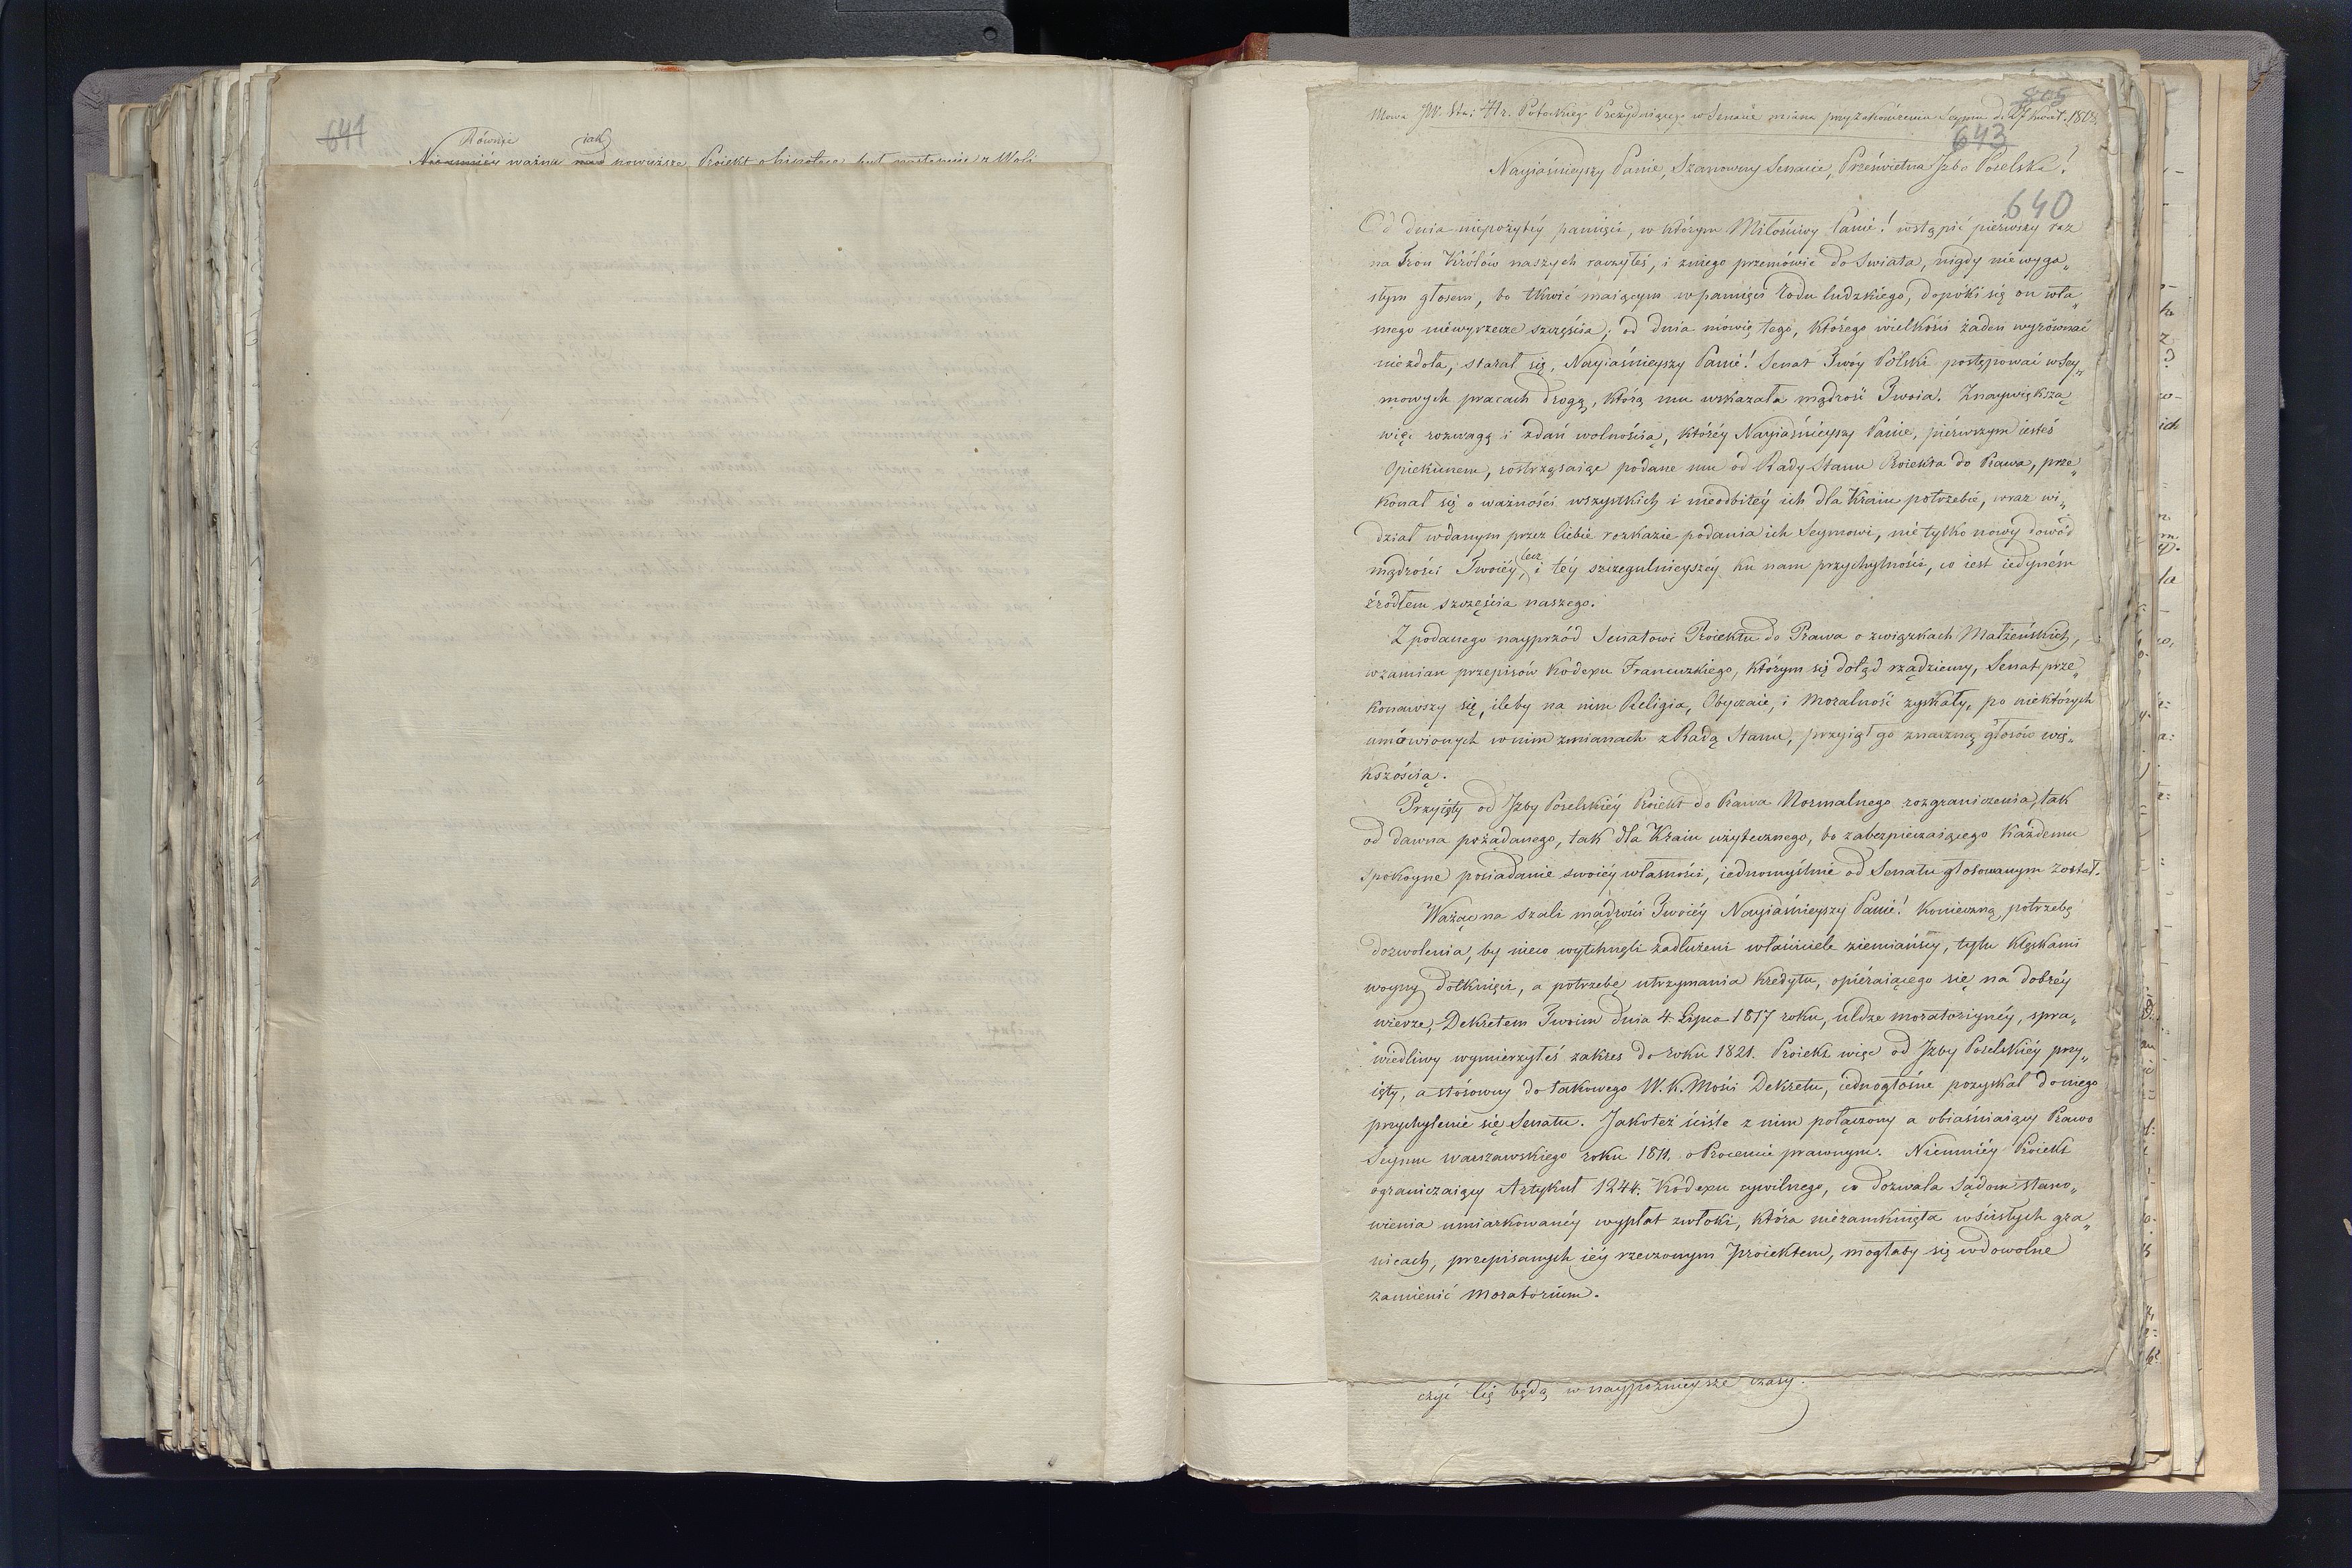 641
Równie jak
Niemniéy ważna nad powyższe Proiekt o hipotece, był nastąpnie z Woli
805
Mowa JW. Sta: Hr. Potockiego Prezyduiącego w Senacie miana przy zakończeniu Seymu d. 27 Kwiet. 1818.
643
Nayiaśnieyszy Panie, Szanowny Senacie, Prześwietna Izbo Poselska!
640
Od dnia niepożytéy pamięci, w którym Miłościwy Panie! wstąpić pierwszy raz
na Tron Królów naszych raczyłeś, i zniego przemówić do Swiata, nigdy nie wyga„
słym głosem, bo tkwić maiącym w pamięci rodu ludzkiego, dopóki się on wła„
snego niewyrzecze szczęścia; od dnia mówię tego, którego wielkości żaden wyrównać
niezdoła, starał się, Nayiaśnieyszy Panie! Senat Twóy Polski postępować w Sey„
mowych pracach drogą, którą mu wskazała mądrość Twoia. Znaywiększą
więc rozwagą i zdań wolnością, któréy Nayiaśnieyszy Panie, pierwszym iesteś
Opiekunem, rostrząsaiąc podane mu od Rady Stanu Proiekta do Prawa, prze„
konał się o ważności wszystkich i nieodbitéy ich dla Kraiu potrzebie, wraz wi„
dział w danym przez Ciebie rozkazie podania ich Seymowi, nie tylko nowy dowód
mądrości Twoiéy, lecz i téy szczegulnieyszéy ku nam przychylności, co iest iedyném
źródłem szczęścia naszego.
Z podanego nayprzód Senatowi Proiektu do Prawa o związkach Małżeńskich,
w zamian przepisów Kodexu Francuzkiego, którym się dotąd rządziemy, Senat prze„
konawszy się, ileby na nim Religia, Obyczaie, i Moralność zyskały, po niektórych
umówionych w nim zmianach z Radą Stanu, przyiął go znaczną głosów wię„
kszością.
Przyięty od Izby Poselskiéy Proiekt do Prawa Normalnego rozgraniczenia, tak
od dawna pożądanego, tak dla Kraiu użytecznego, bo zabezpieczaiącego każdemu
spokoyne posiadanie swoiéy własności, iednomyślnie od Senatu głosowanym został.
Ważąc na szali mądrości Twoiéy Nayiaśnieyszy Panie! konieczną potrzebę
dozwolenia, by nieco wytchnęli zadłużeni właściciele ziemiańscy, tylu klęskami
woyny dotknięci, a potrzebę utrzymania kredytu, opiéraiącego się na dobréy
wierze, Dekretem Twoim dnia 4 Lipca 1817 roku, uldze moratoriynéy, spra„
wiedliwy wymierzyłeś zakres do roku 1821. Proiekt więc od Izby Poselskiéy przy„
ięty, a stósowny do takowego W. K. Mości Dekretu, iednogłośne pozyskał do niego
przychylenie się Senatu. Jakoteż ściśle z nim połączony a obiaśniaiący Prawo
Seymu Warszawskiego roku 1811. o Procencie prawnym. Niemniéy Proiekt
ograniczaiący Artykuł 1244. Kodexu cywilnego, co dozwala Sądom stano„
wienia umiarkowanéy wypłat zwłoki, która niezamknięta w ścisłych gra„
nicach, przepisanych iéy rzeczonym Proiektem, mogłaby się w dowolne
zamienić moratorium.
czyć Cię będą w naypóźnieysze czasy.